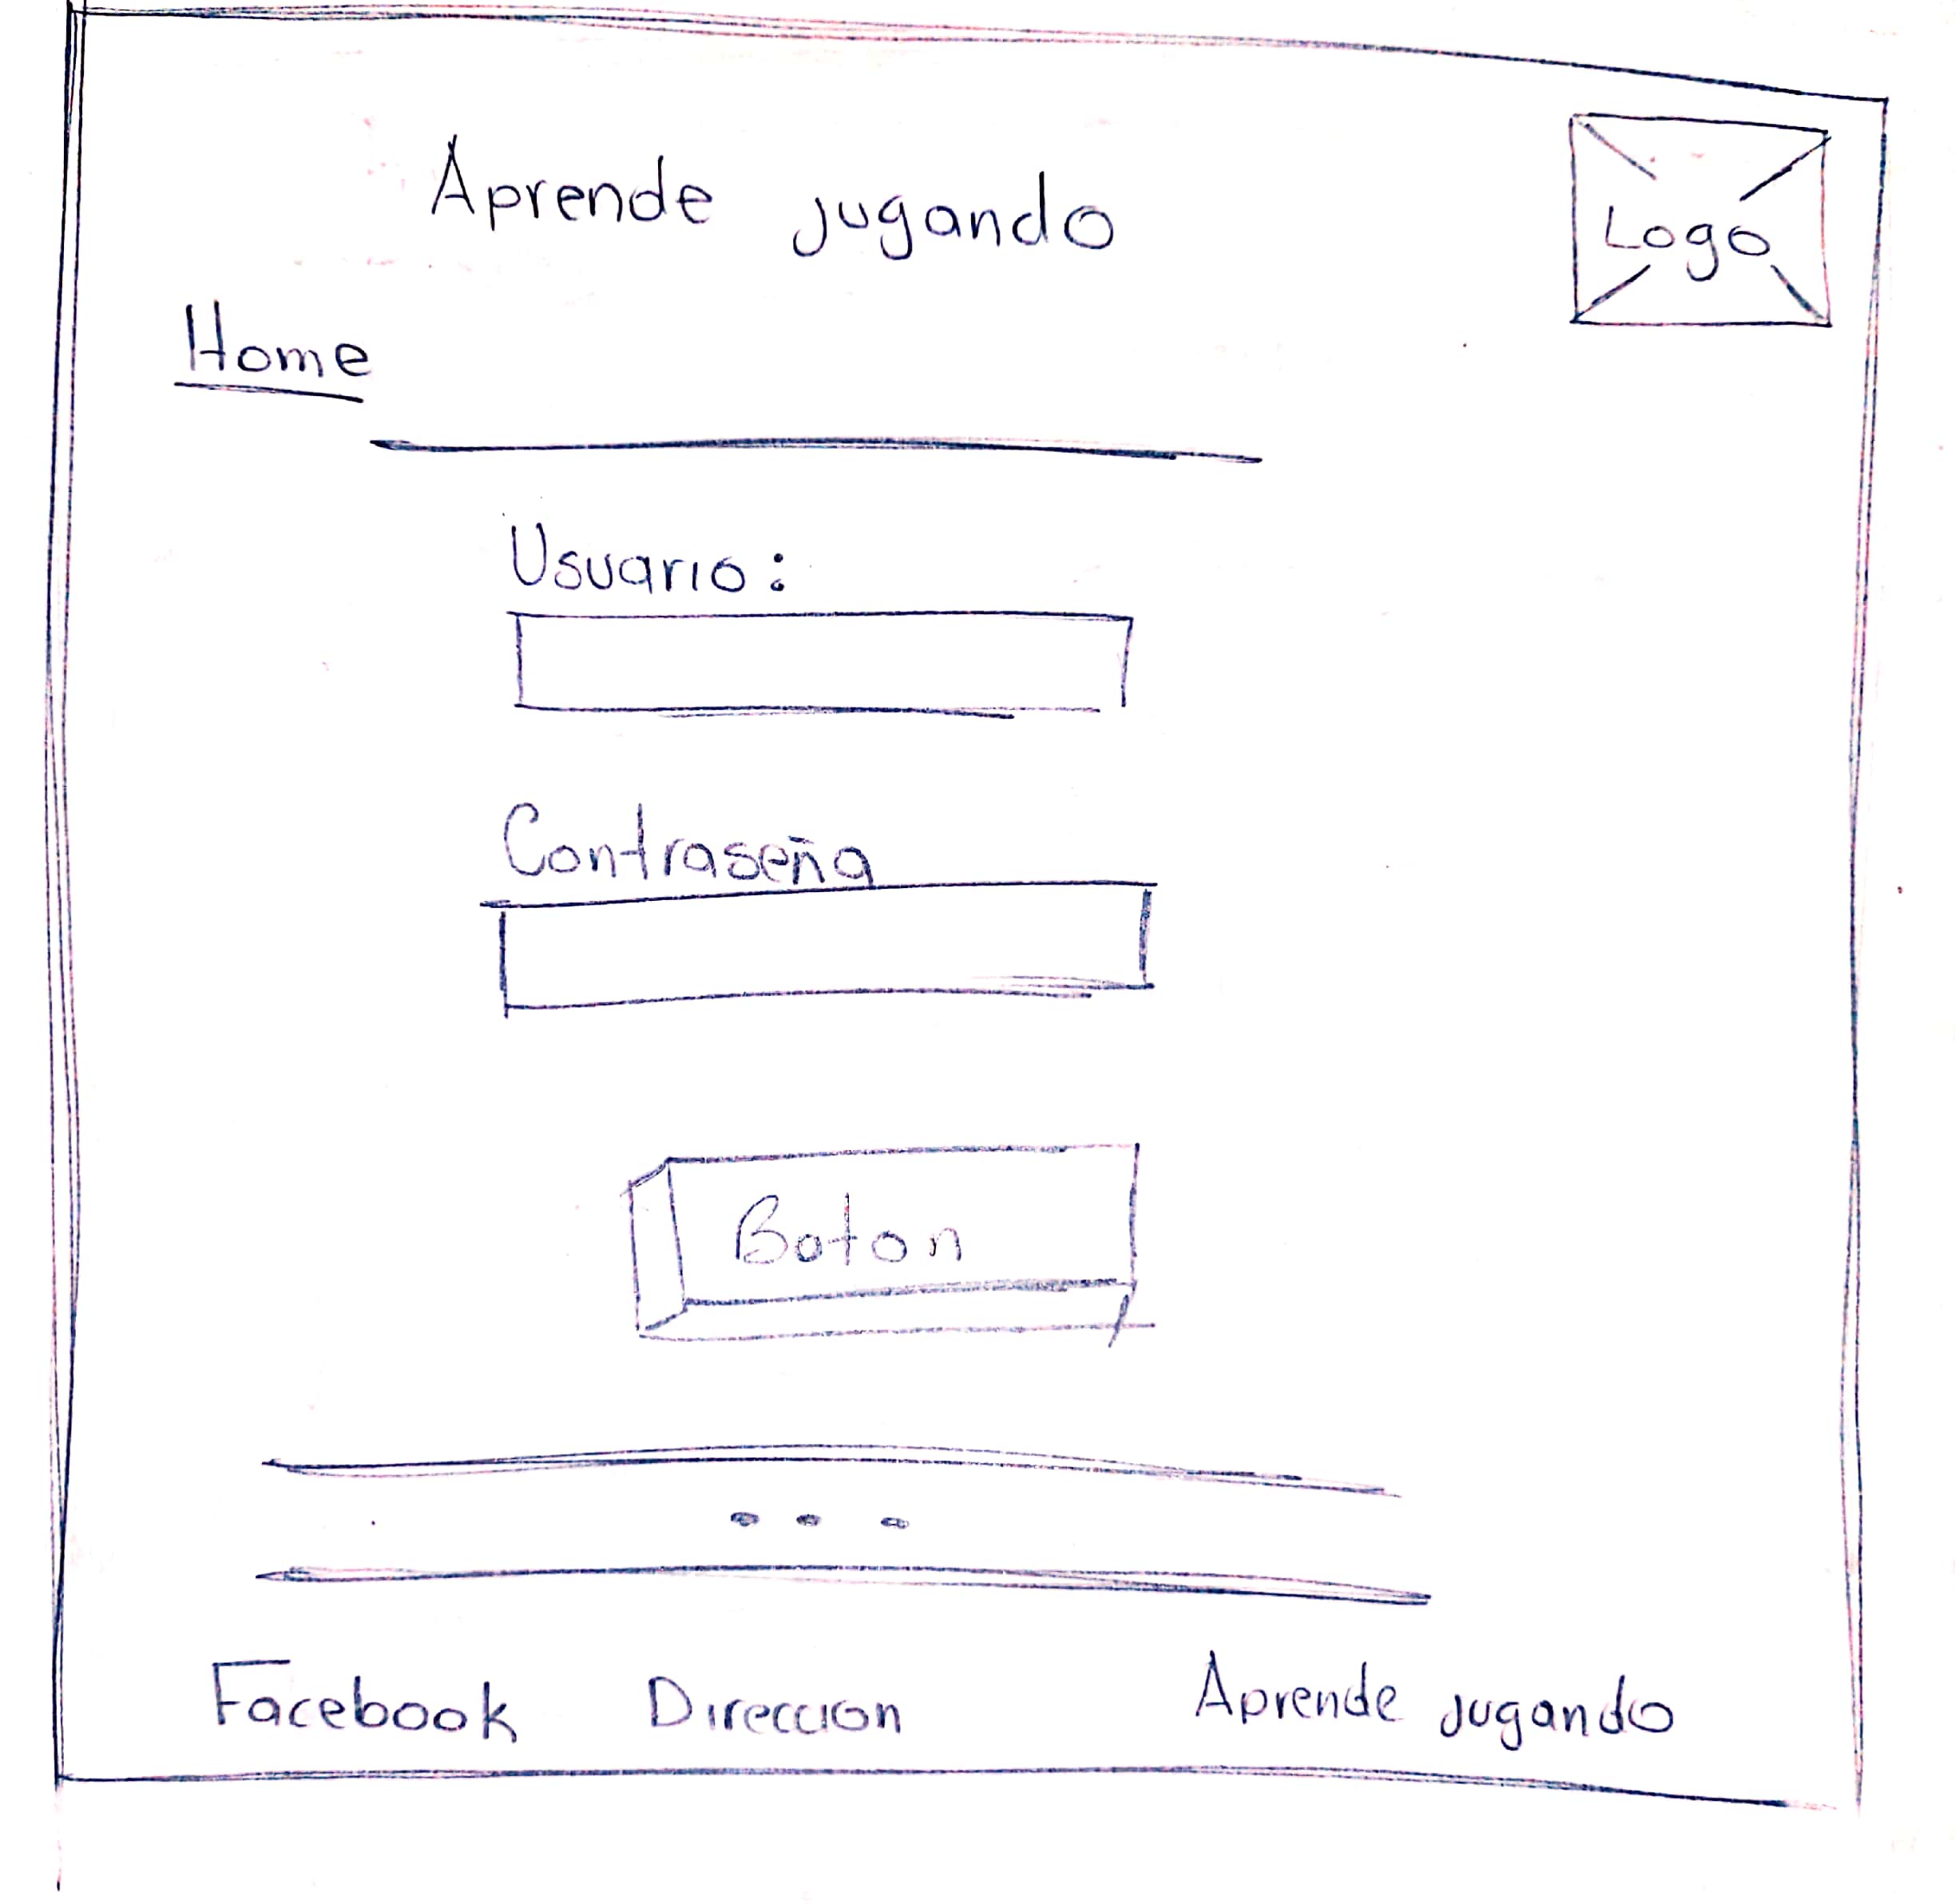 Aprende jugando
Logo
Home
Usuario:
Contraseña
Boton
Facebook Direccion Aprende jugando